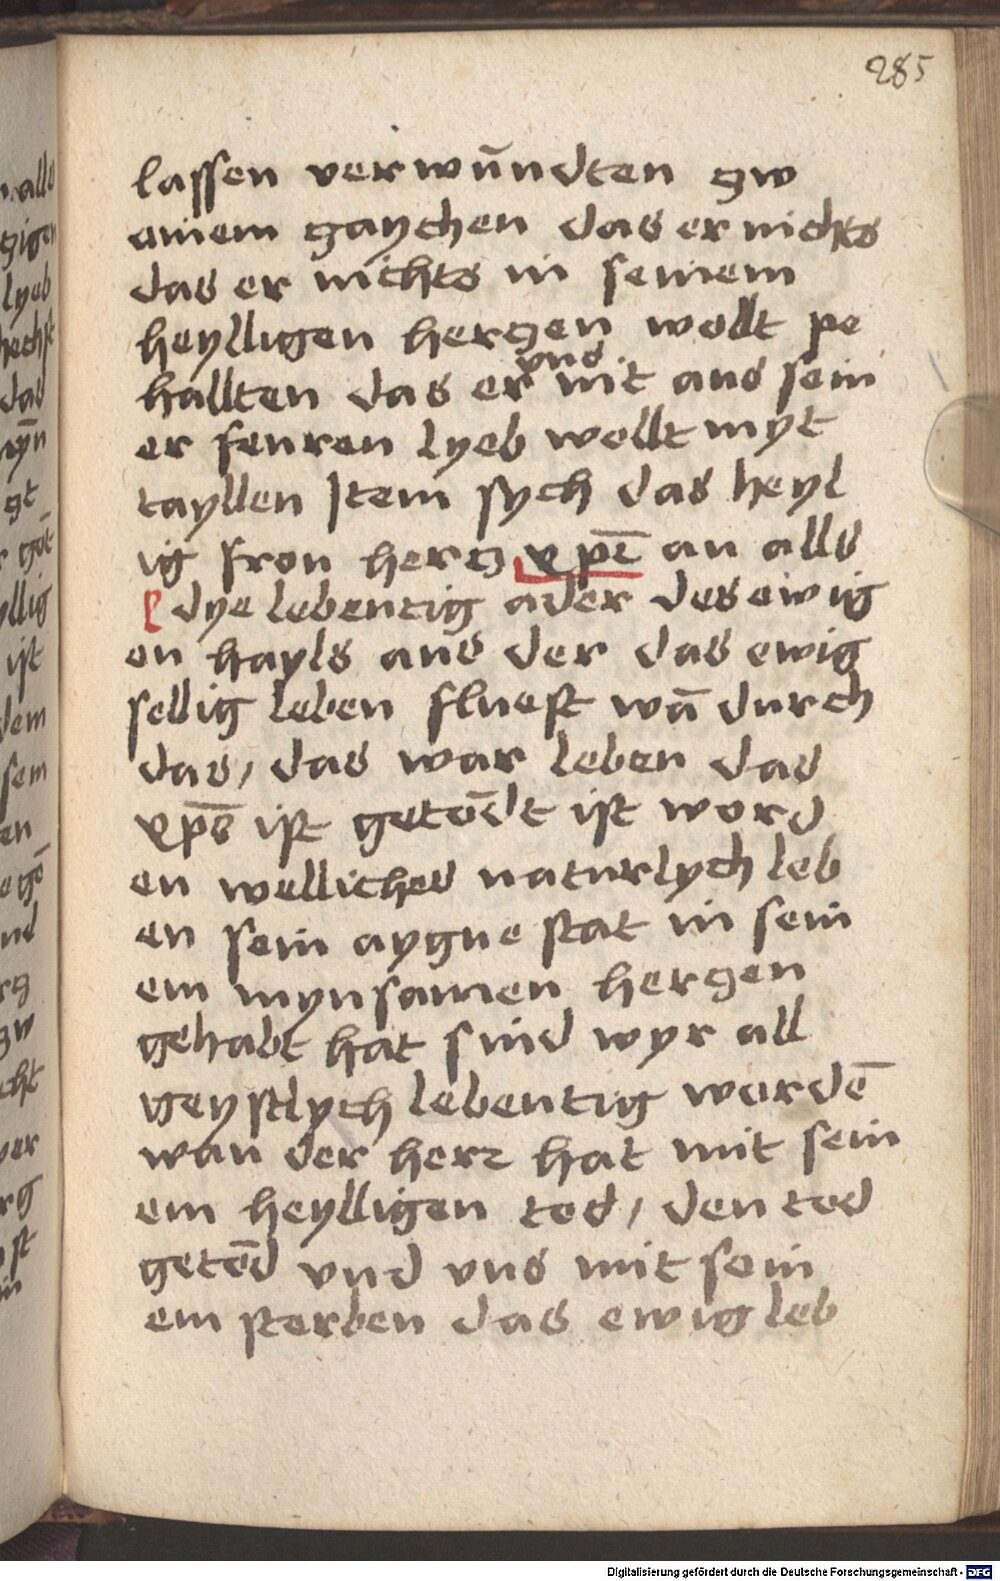 285
lassen verwūndten gw
ainem gaychen das er nichts
das er nichts in seinem
heylligen hergen wollt pe
hallten das er uns nit aus sein
er feuren lyeb wollt myt
tayllen Item sych das heyl
ig fron herg xpē an alls
dye lebentig ader des ewig
en hayls aus der das ewig
sellig leben fluest wā durch
das, das war leben das
xps̄ ist getōdt ist word
en welliches naturlych leb
en sein aygne stat in sein
em mynsamen hergen
gehabt hat sind wyr all
geystlych lebentig wordē
wan der herr hat mit sein
em heylligen tod, den tod
getōd vnd vns mit sein
em sterben das ewig leb
Digitalisierung gefördert durch die Deutsche Forschungsgemeinschaft - DFG